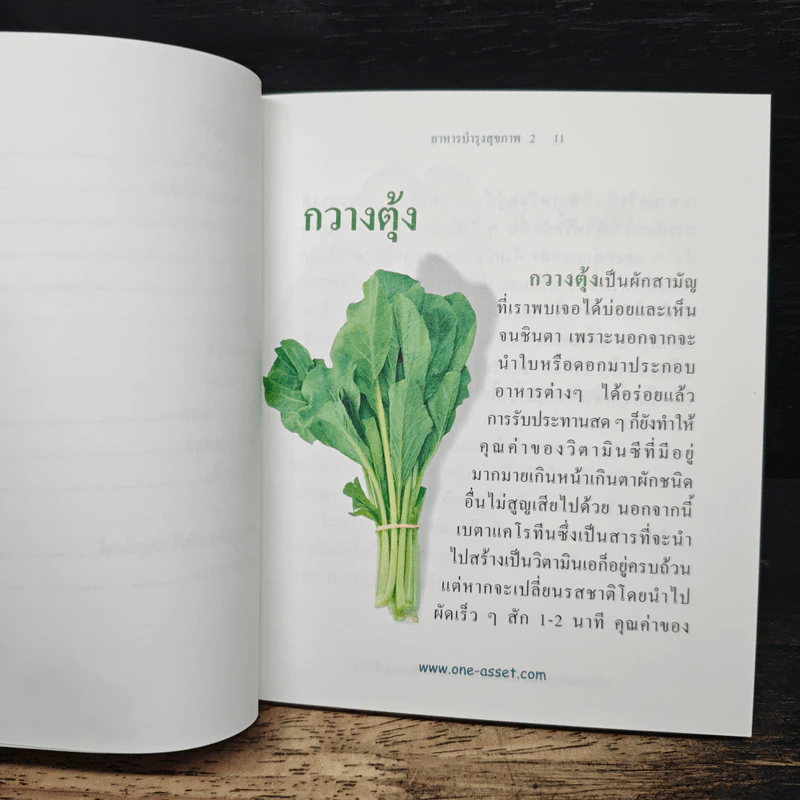 อาหารบำรุงสุขภาพ 2 11
กวางตุ้ง
กวางตุ้งเป็นผักสามัญ
ที่เราพบเจอได้บ่อยและเห็น
จนชินตา เพราะนอกจากจะ
นำใบหรือดอกมาประกอบ
อาหารต่างๆ ได้อร่อยแล้ว
การรับประทานสด ๆ ก็ยังทำให้
คุณค่าของวิตามินซีที่มีอยู่
มากมายเกินหน้าเกินตาผักชนิด
อื่นไม่สูญเสียไปด้วย นอกจากนี้
เบตาแคโรทีนซึ่งเป็นสารที่จะนำ
ไปสร้างเป็นวิตามินเอก็อยู่ครบถ้วน
แต่หากจะเปลี่ยนรสชาติโดยนำไป
ผัดเร็ว ๆ สัก 1-2 นาที คุณค่าของ
www.one-asset.com